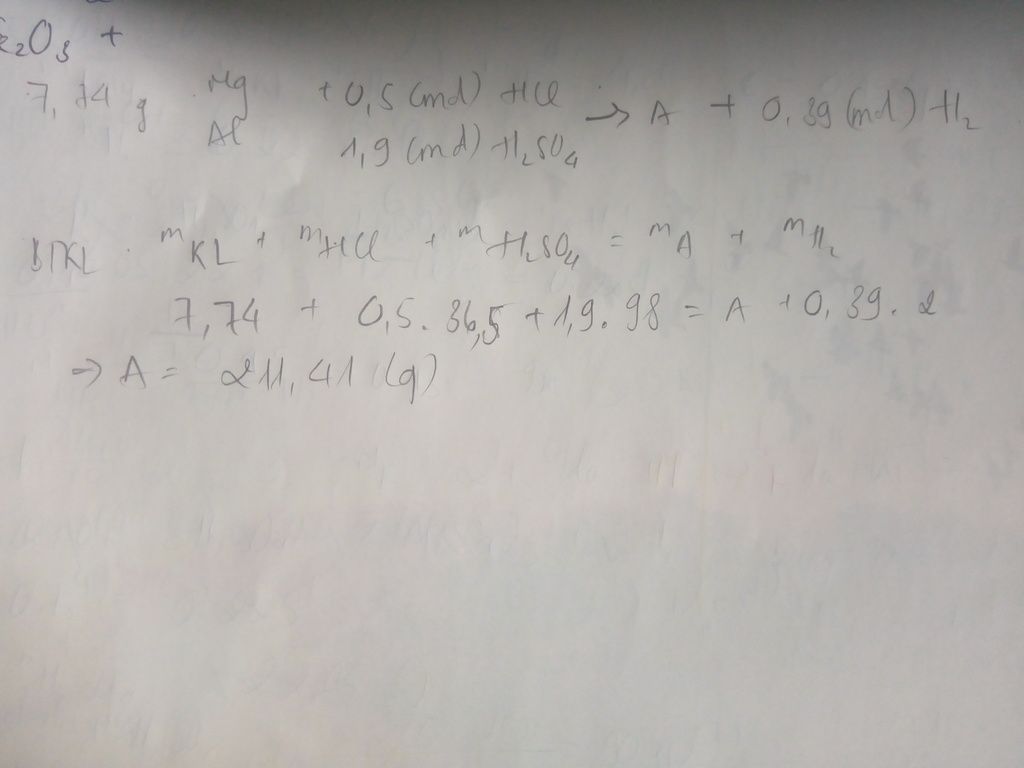 2O3 +
7,74 g Mg + 0,5 (mol) HCl → A + 0,39 (mol) H2
Al 1,9 (mol) H2SO4
BTKL : mKL + mHCl + mH2SO4 = mA + mH2
7,74 + 0,5. 36,5 + 1,9. 98 = A + 0,39. 2
⇒ A = 211,41 (g)